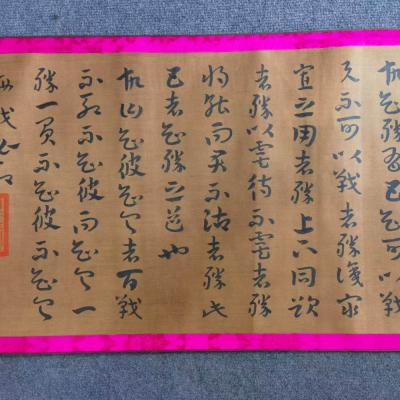 故知勝有五知可以戰
与不可以戰者勝識眾
寡之用者勝上下同欲
者勝以虞待不虞者勝
將能而君不御者勝此
五者知勝之道也
故曰知彼知己者百戰
不殆不知彼而知己一
勝一負不知彼不知己
每戰必殆